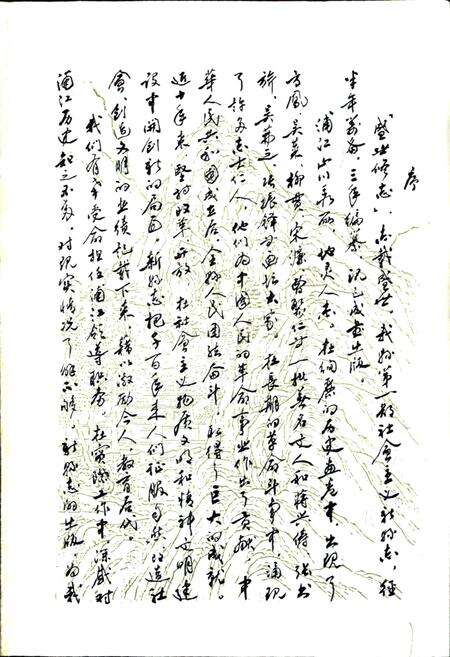 序
“盛世修志”，志载盛世。我县第一部社会主义新县志，经
半年筹备，三年编纂，现已成书出版。
浦江山川秀丽，地灵人杰。在绚丽的历史画卷中，出现了
方凤、吴莱、柳贯、宋濂、曹聚仁等一批著名文人和蒋兴俦、张书
旂、吴茀之、张振铎等画坛大家。在长期的革命斗争中涌现
了许多志士仁人，他们为中国人民的革命事业作出了贡献。中
华人民共和国成立后，全县人民团结奋斗，取得了巨大的成就。
近十年来，坚持改革开放，在社会主义物质文明和精神文明建
设中开创新的局面。新县志把千百年来人们征服自然、改造社
会、创造文明的业绩记载下来，藉以激励今人，教育后代。
我们有幸受命担任浦江领导职务，在实际工作中，深感对
浦江历史知之不多，对现实情况了解不够。新县志的出版，为我